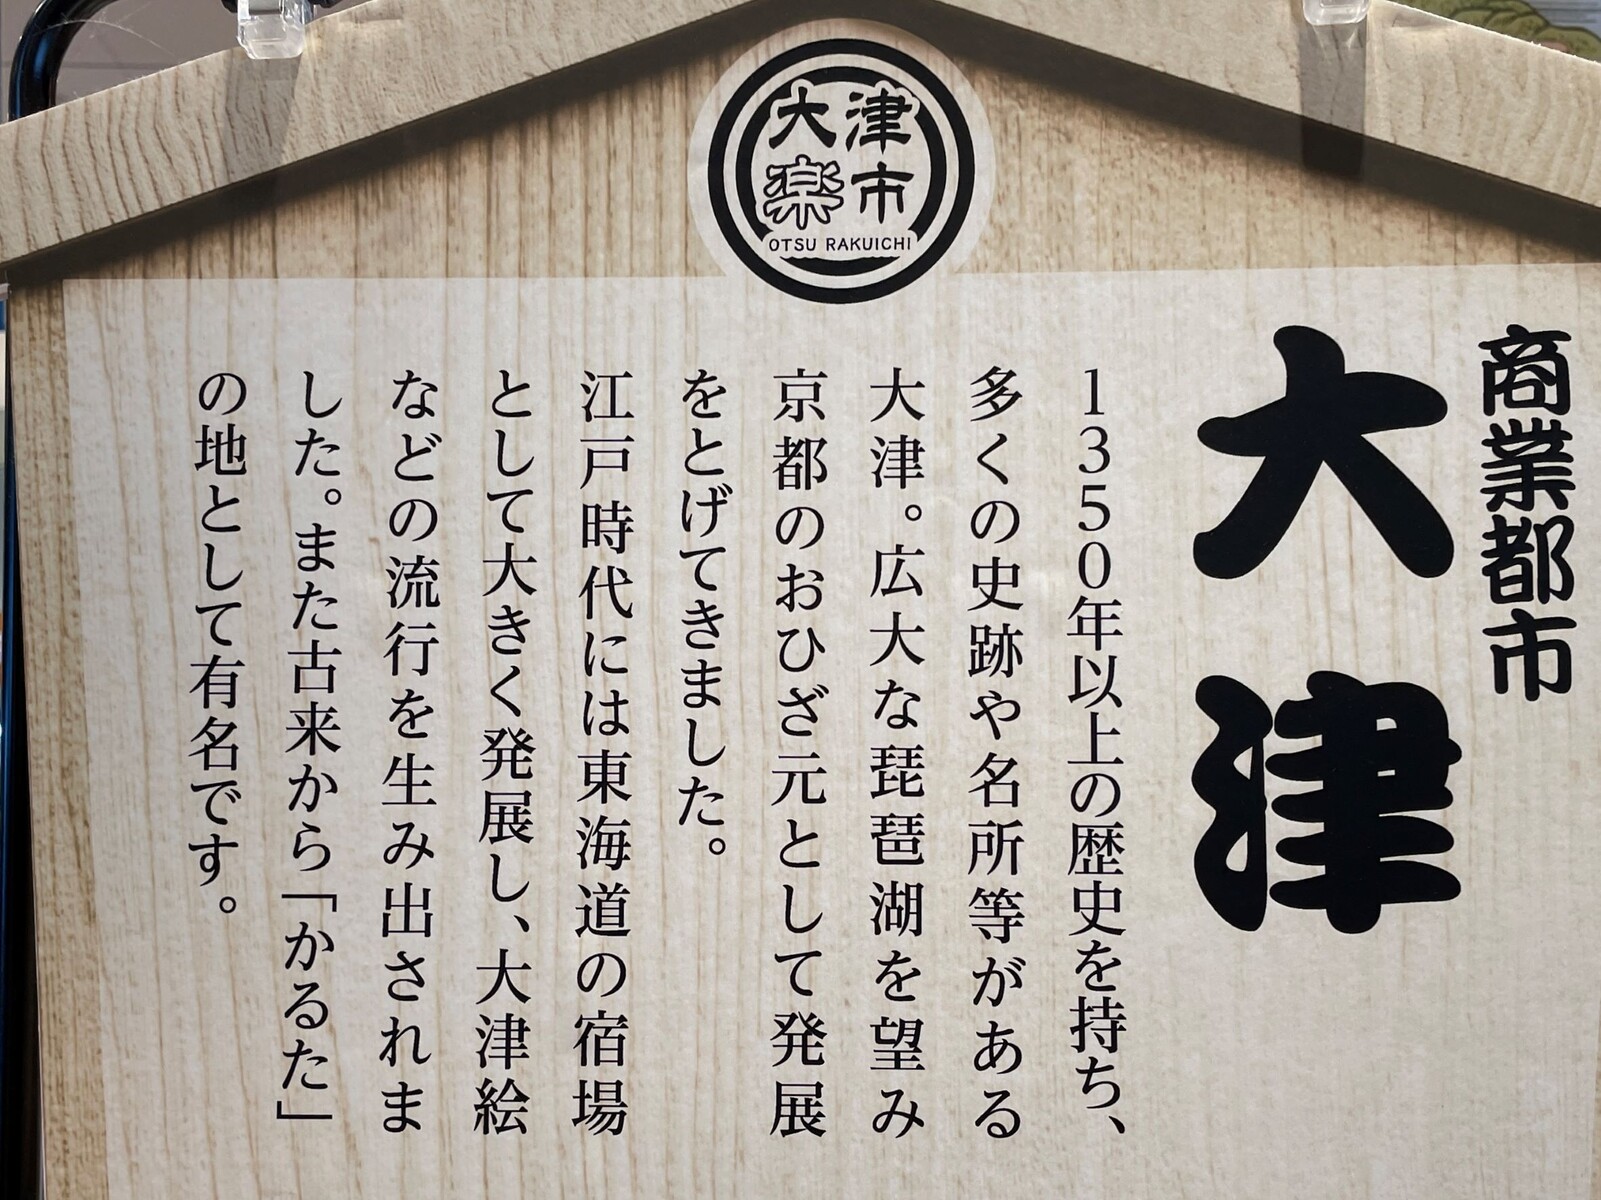 大津
楽市
OTSU RAKUICHI
商業都市
大津
1350年以上の歴史を持ち、
多くの史跡や名所等がある
大津。広大な琵琶湖を望み
京都のおひざ元として発展
をとげてきました。
江戸時代には東海道の宿場
として大きく発展し、大津絵
などの流行を生み出されま
した。また古来から「かるた」
の地として有名です。